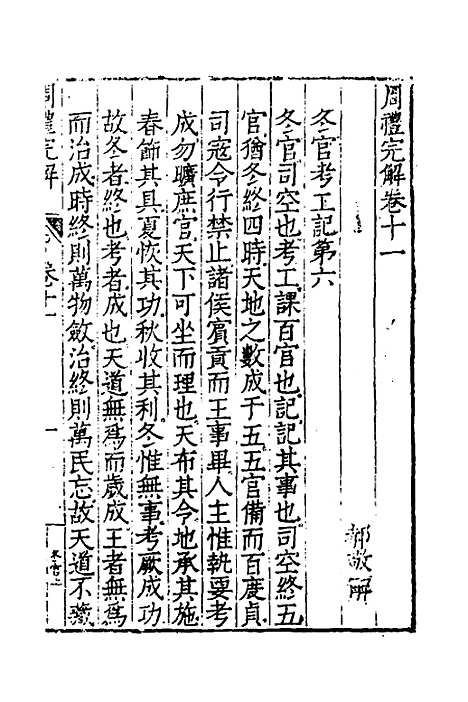 周禮完解卷十一
郝敬解
冬官考工記第六
冬官司空也考工課百官也記記其事也司空終五
官猶冬終四時天地之數成于五五官備而百度貞
司寇令行禁止諸侯賓貢而王事畢人主惟執要考
成勿曠庶官天下可坐而理也天布其令地承其施
春飾其具夏恢其功秋收其利冬惟無事考厥成功
故冬者終也考者成也天道無爲而歲成王者無爲
而治成時終則萬物斂治終則萬民忘故天道不㦳
周禮完解
卷十一
一